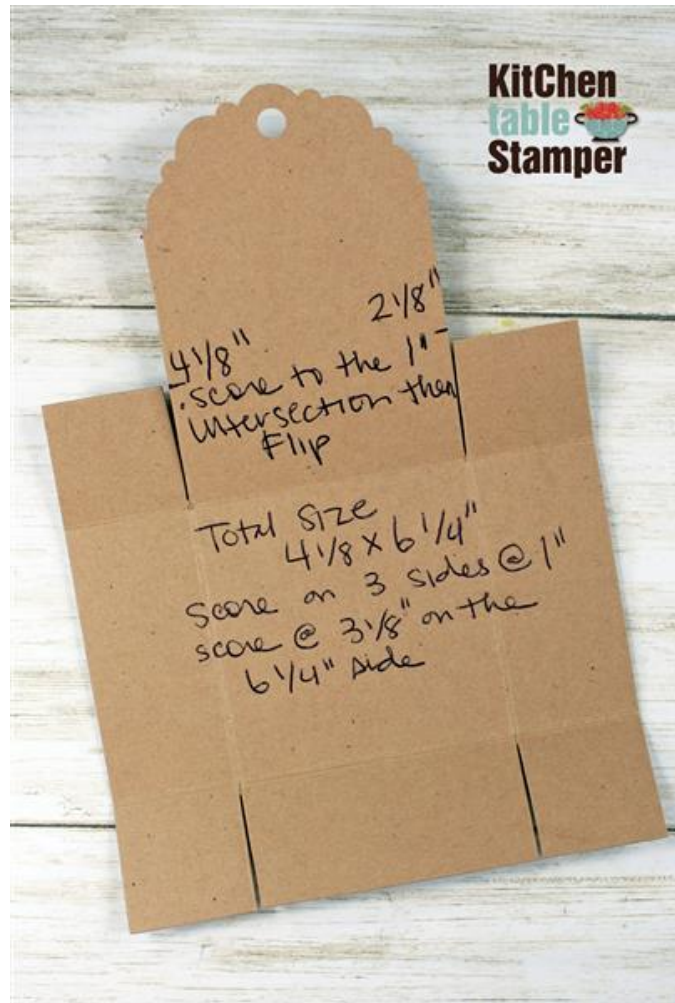 KitChen
table
Stamper
2 1/8"
4 1/8"
score to the 1"
intersection then
Flip
Total Size
4 1/8 x 6 1/4"
Score on 3 sides @ 1"
score @ 3 1/8" on the
6 1/4" side